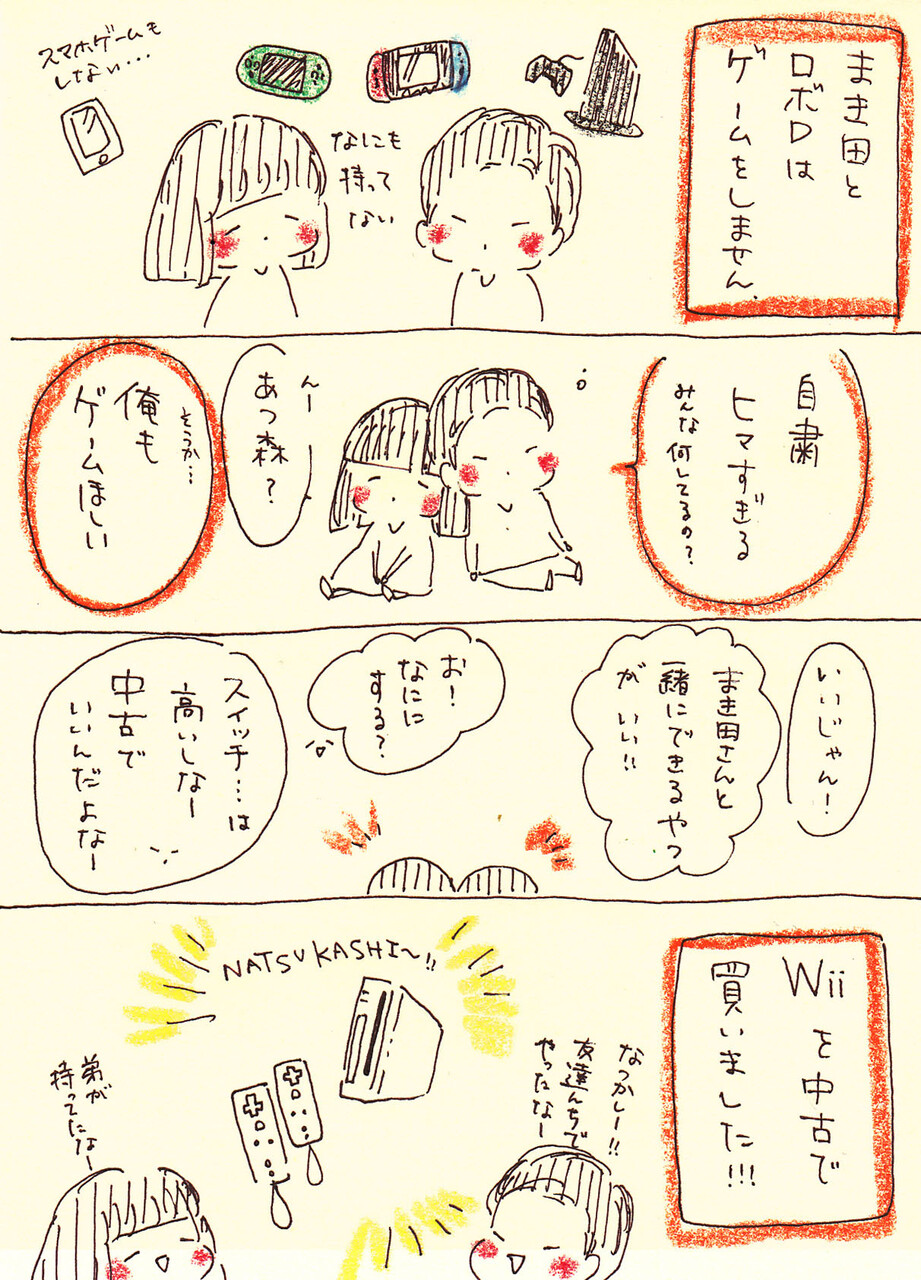 まき田と
ロボロは
ゲームをしません.
なにも
持って
ない
スマホゲームも
しない…
自粛
ヒマすぎる
みんな何してるの?
んー
あつ森?
そうか…
俺も
ゲームほしい
いいじゃん!
まき田さんと
一緒にできるやつ
がいい!!
お!
なにに
する?
スイッチ…は
高いしなー
中古で
いいんだよなー
Wiiを中古で
買いました!!!
NATSUKASHI〜!!
なつかしー!!
友達んちで
やったなー
弟が
持ってたなー